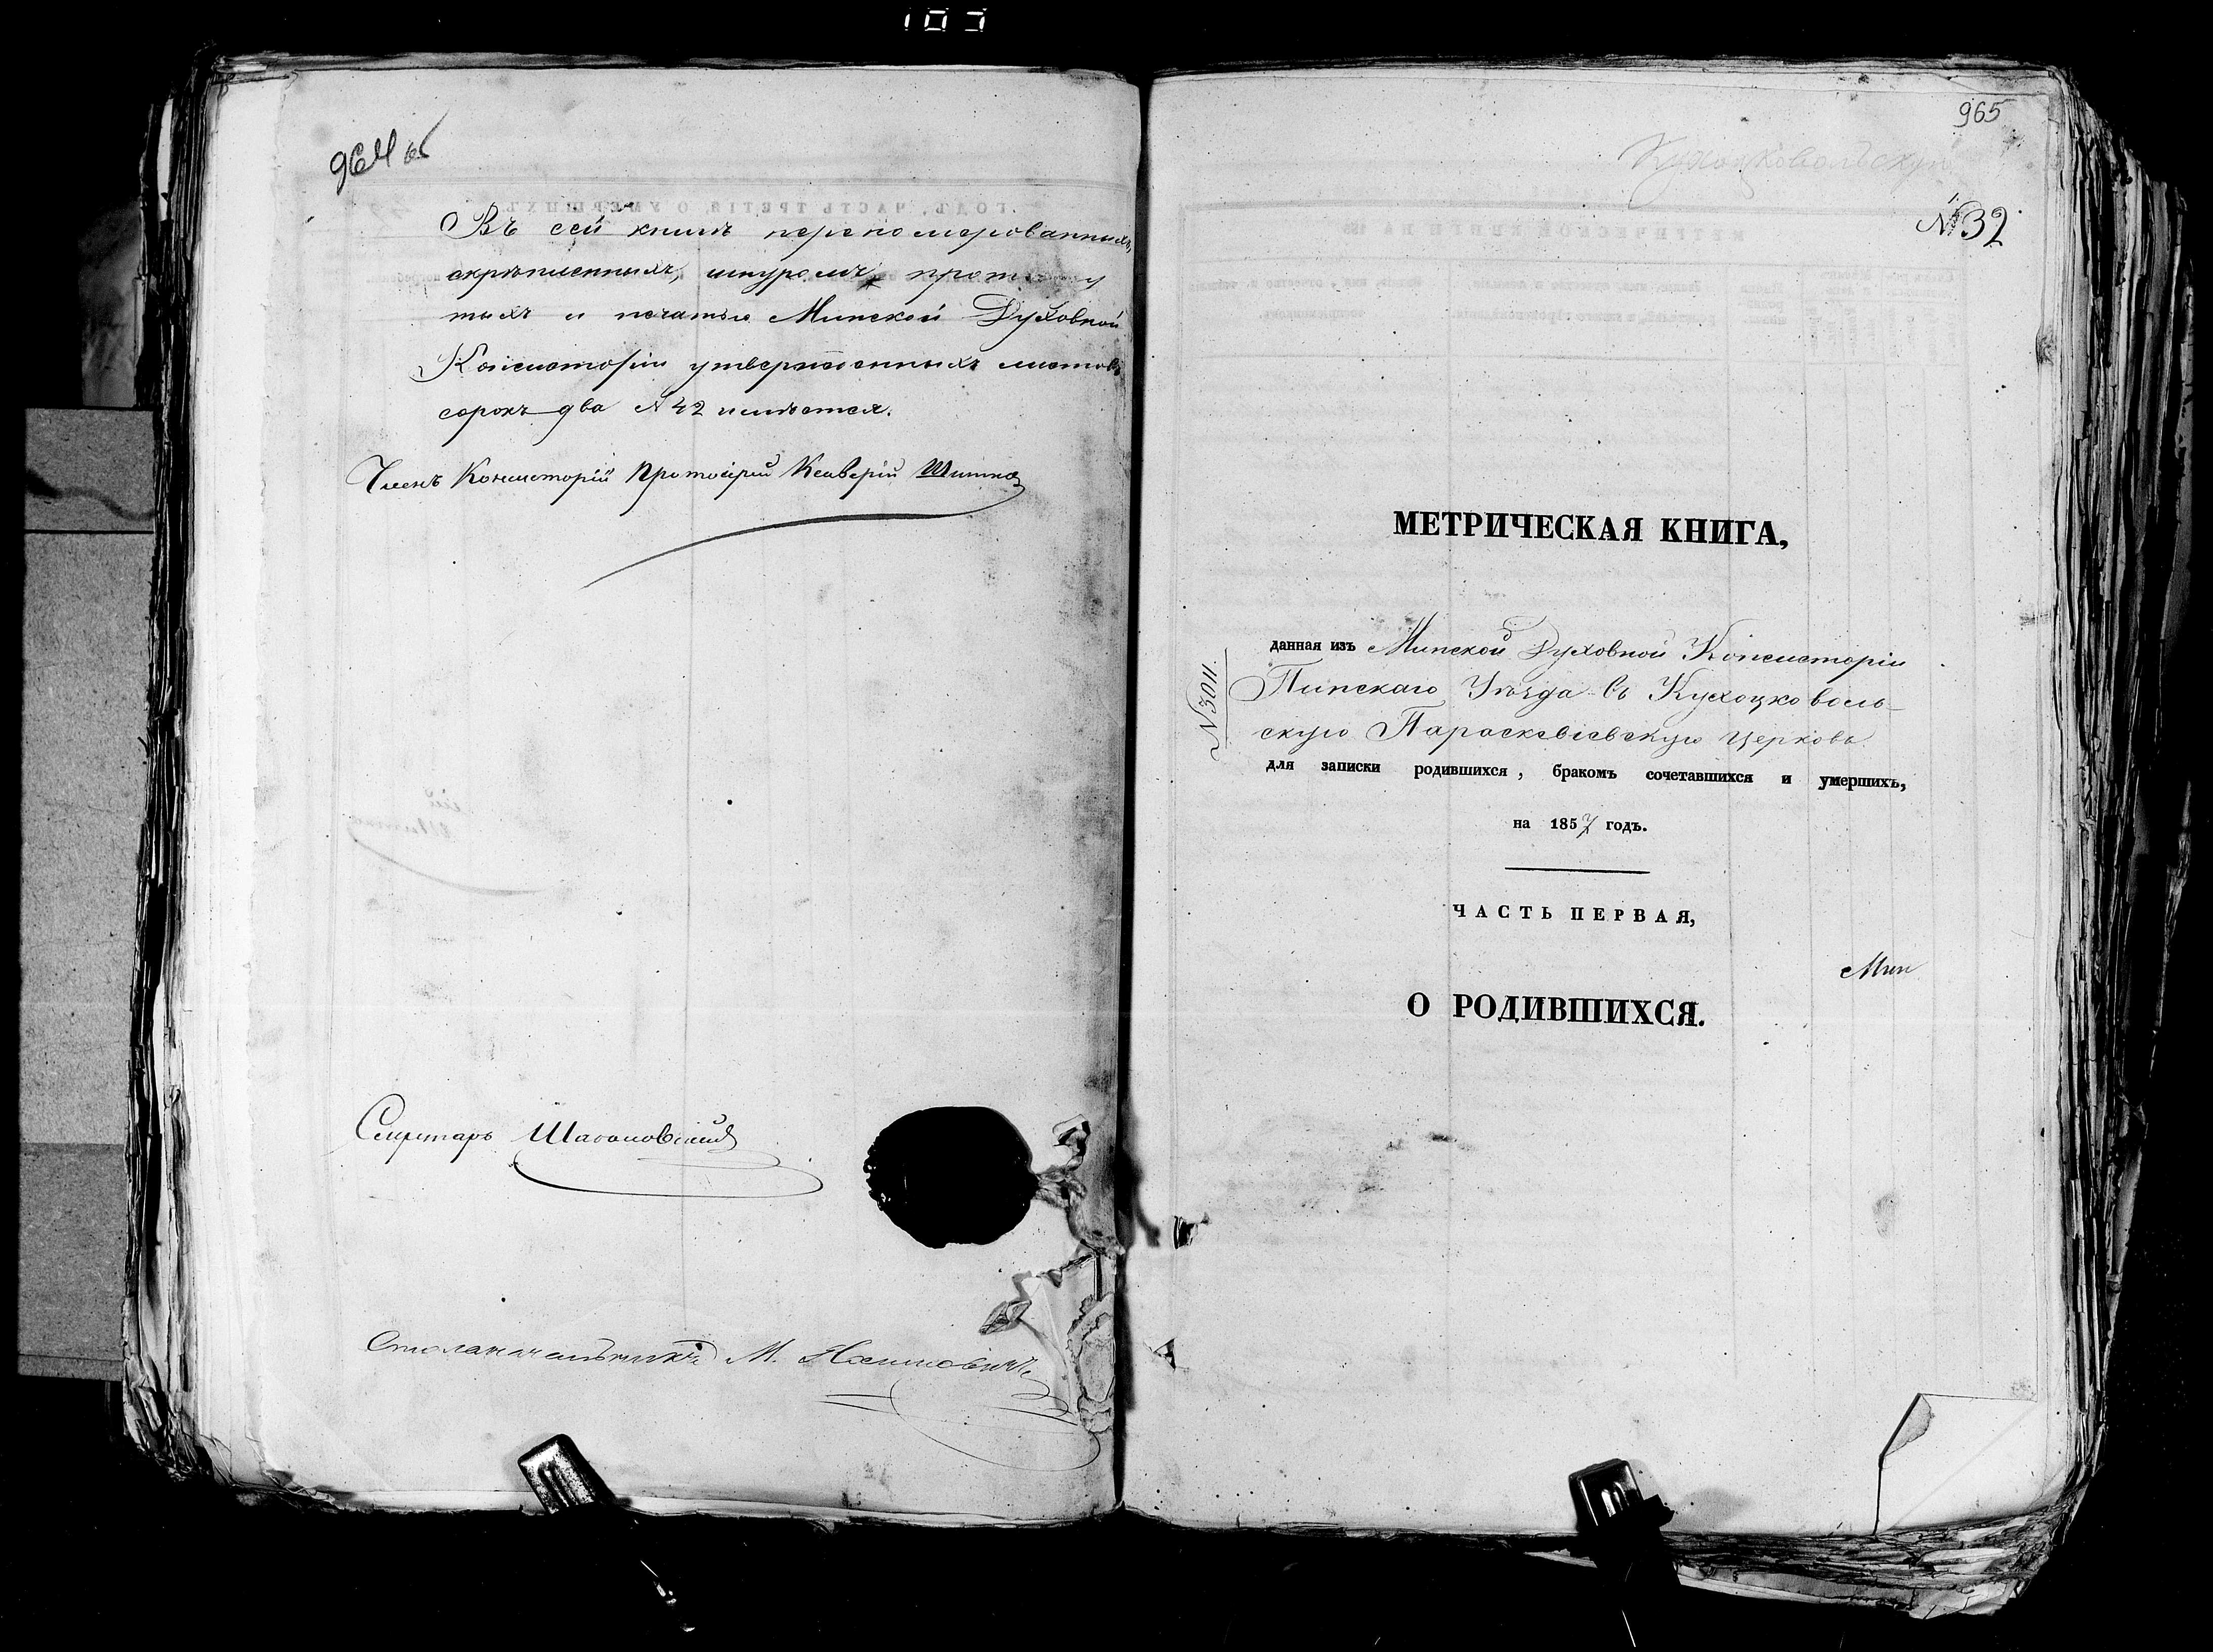 964 об
Въ сей книгѣ перепомерованныхъ,
скрѣпленныхъ, шнуромъ прот
тыхъ и печатью Минской Духовной
Консисторіи утвержденныхъ листовъ
сорокъ два № 42 имѣется.
Членъ Консисторіи Протоіерей Ксаверій
Секретарь
Столоначальникъ М.
965
Кухоцковольскую
№ 32
МЕТРИЧЕСКАЯ КНИГА,
№ 3011.
данная изъ Минской Духовной Консисторіи
Пинскаго Уѣзда въ Кухоцковоль-
скую Параскевіевскую церковь
для записки родившихся, бракомъ сочетавшихся и умершихъ,
на 1857 годъ.
ЧАСТЬ ПЕРВАЯ,
Мин
О РОДИВШИХСЯ.